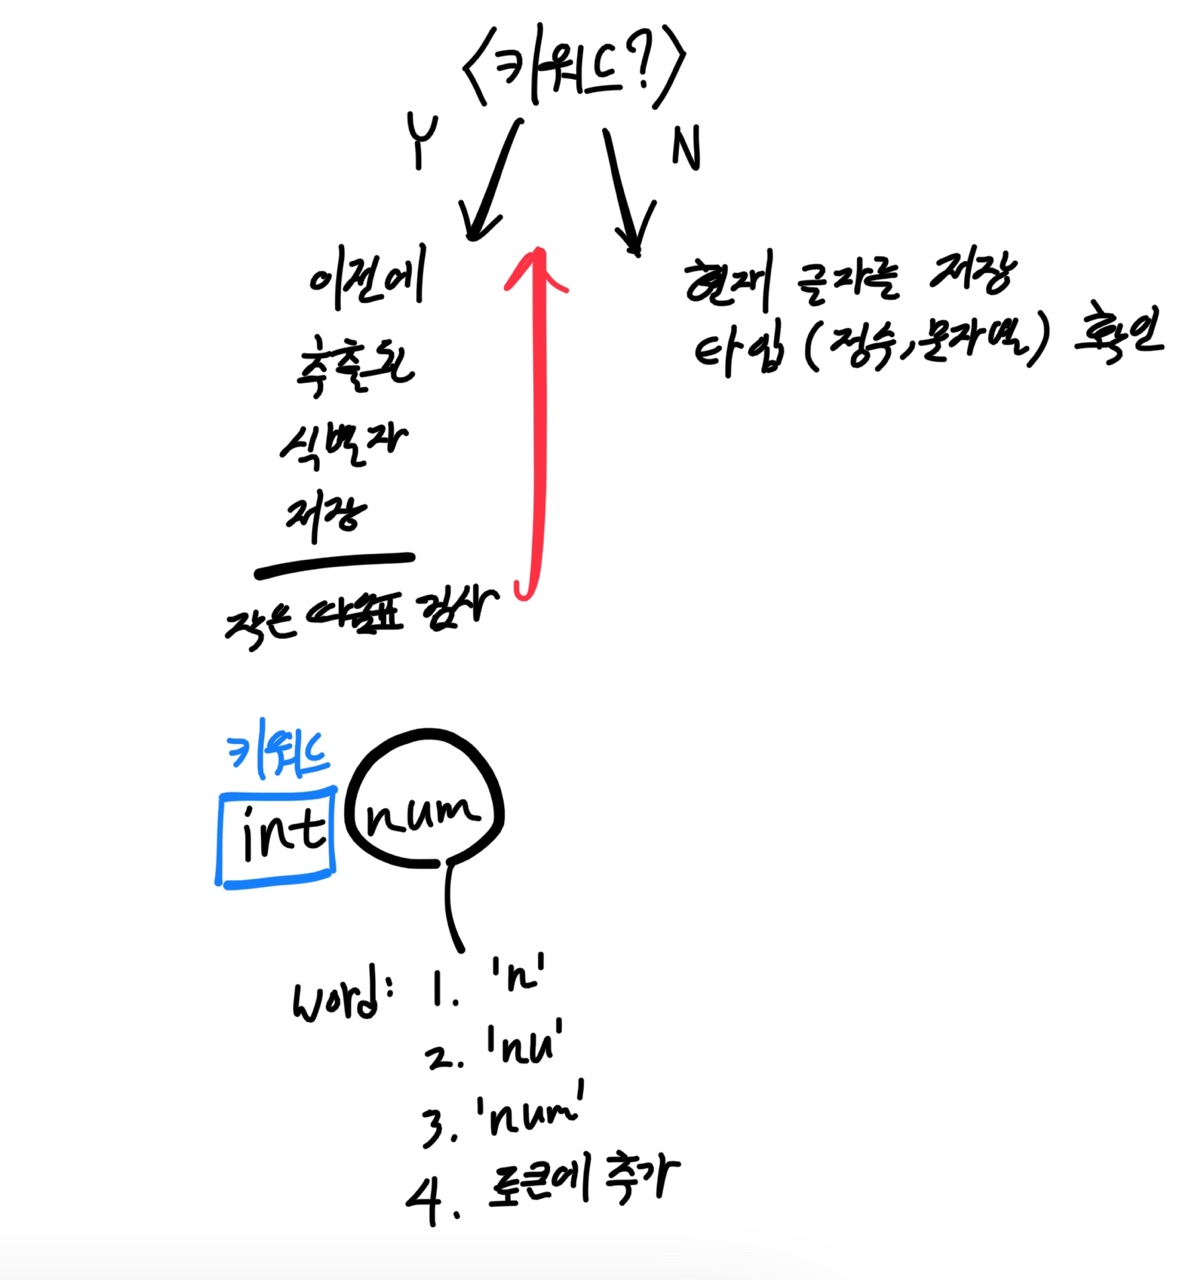 <키워드?>
Y
N
이전에
추출된
식별자
저장
작은 따옴표 검사
현재 글자를 저장
타입 (정수, 문자열) 확인
키워드
int
num
word: 1. 'n'
2. 'nu'
3. 'num'
4. 토큰에 추가